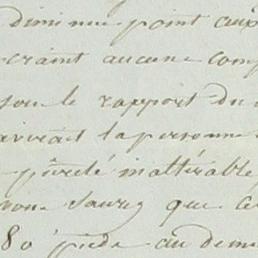 diminue point aux
craint aucune com
sou le rapport du
la personne
pureté inaltérable
vous saurez que ce
80 pieds au dessu